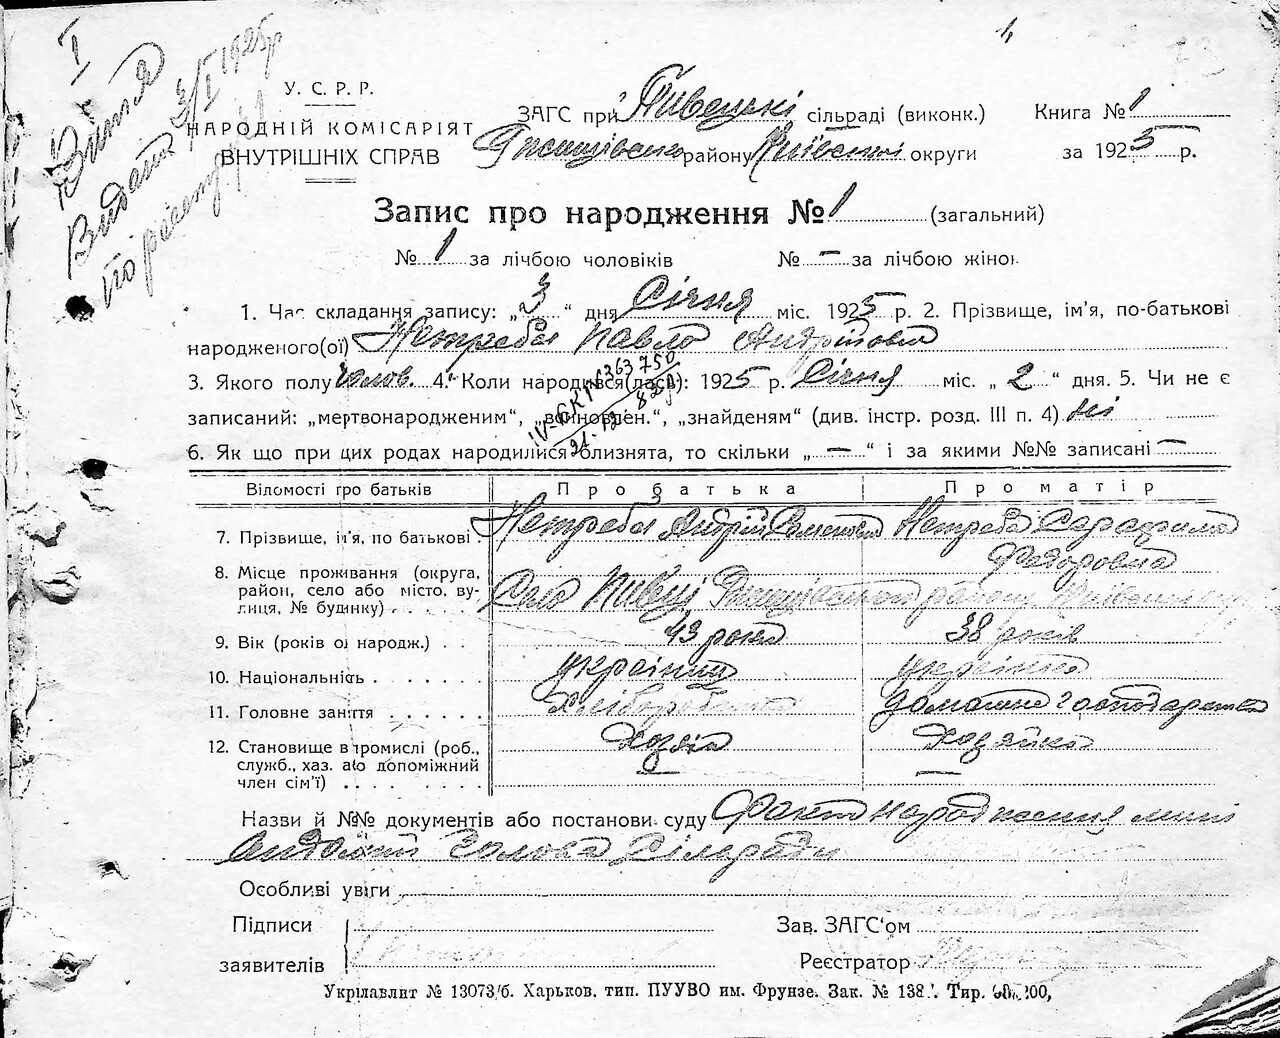 I
Витяг
Видат 3/I 1925р
по реєстру №1
4
73
У. С. Р. Р.
НАРОДНІЙ КОМІСАРІЯТ
ВНУТРІШНІХ СПРАВ
ЗАГС при Пивецькі сільраді (виконк.) Книга № 1
району Київської округи за 1925 р.
Запис про народження № 1 (загальний)
№ 1 за лічбою чоловіків № — за лічбою жінок
1. Час складання запису: „ 3 “ дня Січня міс. 1925 р. 2. Прізвище, ім'я, по-батькові
народженого(ої) Нетреба Павло Андрійович
3. Якого полу чолов. 4. Коли народився(лася): 1925 р. Січня міс. „ 2 “ дня. 5. Чи не є
записаний: „мертвонародженим“, „ “, „знайденям“ (див. інстр. розд. III п. 4) Ні
IV-БК № 363750
21-12-82р
6. Як що при цих родах народилися близнята, то скільки „ — “ і за якими №№ записані —
Відомості про батьків Про батька Про матір
7. Прізвище, ім'я, по батькові Нетреба Андрій Нетреба
Федоровна
8. Місце проживання (округа,
район, село або місто, вулиця, № будинку) Село Пивці району
9. Вік (років од народж.) 43 роки 38 років
10. Національність українец українка
11. Головне заняття Хліборобство домашнє господарство
12. Становище в промислі (роб.,
служб., хаз. або допоміжний
член сім'ї) Хозяїн Хозяйка
— —
Назви й №№ документів або постанови суду Факт народження мині
Голова Сільради
Особливі уваги
Підписи
заявителів
Зав. ЗАГС'ом
Реєстратор
Укрглавлит № 13073/б. Харьков, тип. ПУУВО им. Фрунзе. Зак. № 138 . Тир. 00,